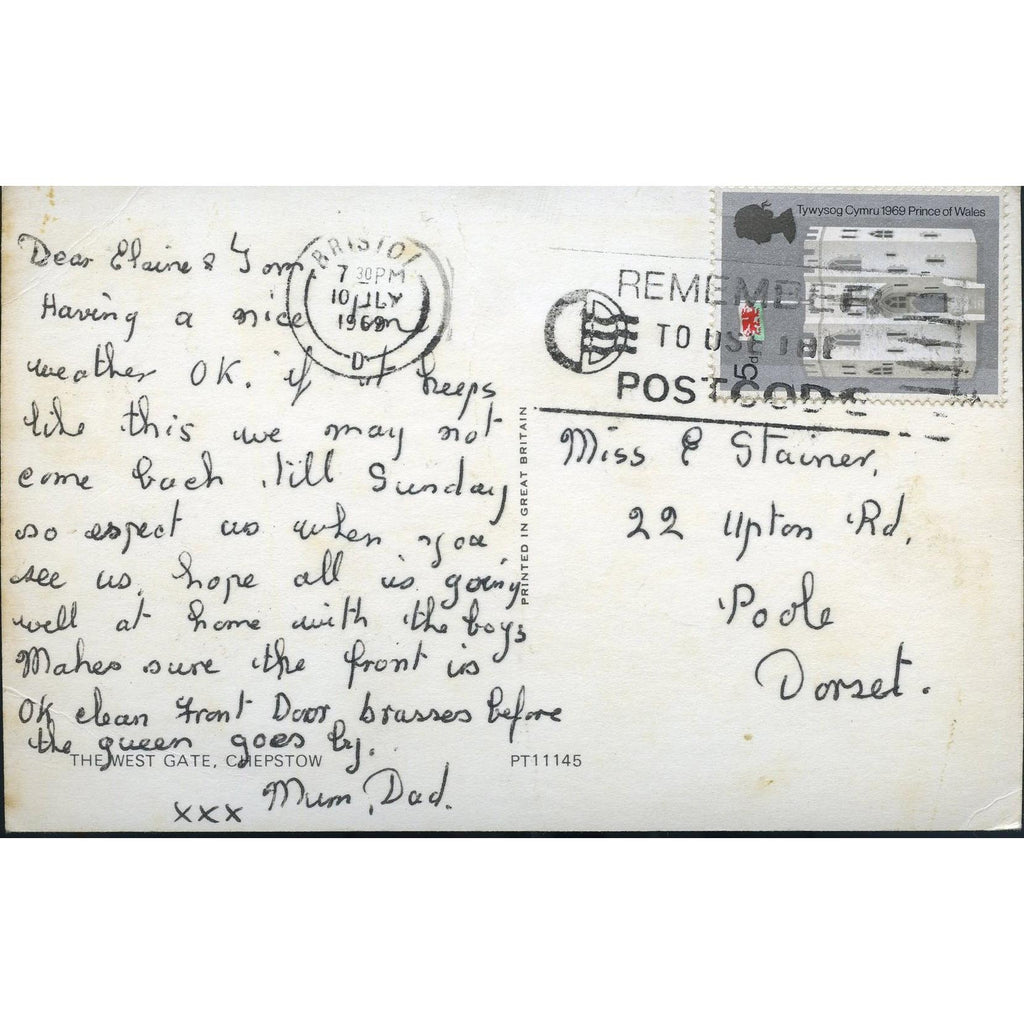 Dear Elaine & Tom,
Having a nice time
weather OK. if it keeps
like this we may not
come back till Sunday
so expect us when you
see us. hope all is going
well at home with the boys
Makes sure the front is
OK clean Front Door brasses before
the queen goes by.
xxx Mum, Dad.
THE WEST GATE, CHEPSTOW
PT11145
PRINTED IN GREAT BRITAIN
BRISTOL
7 30PM
10 JLY
1969
D
REMEMBER
TO USE THE
POSTCODE
Tywysog Cymru 1969 Prince of Wales
5d
Miss E Stainer,
22 Upton Rd,
Poole
Dorset.